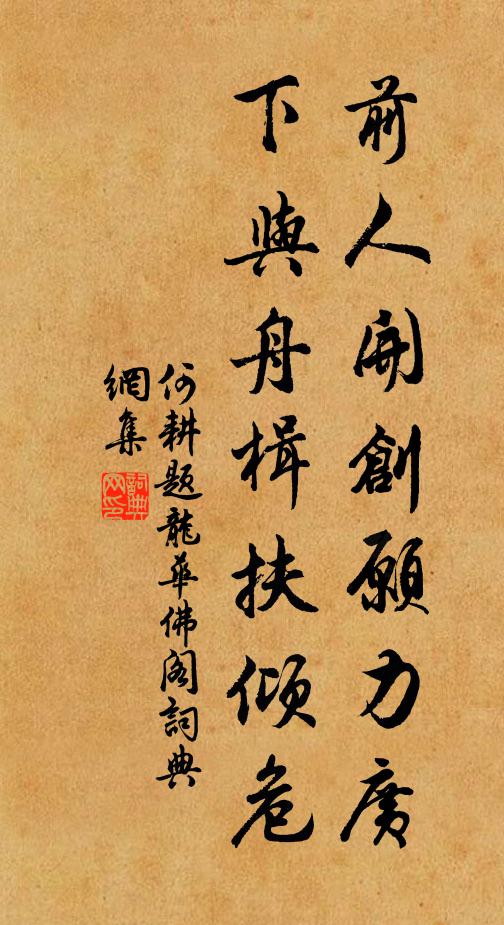 前人開創願力廣
下與舟楫扶傾危
何耕題龍華佛閣詞典
網集
詞典
网印